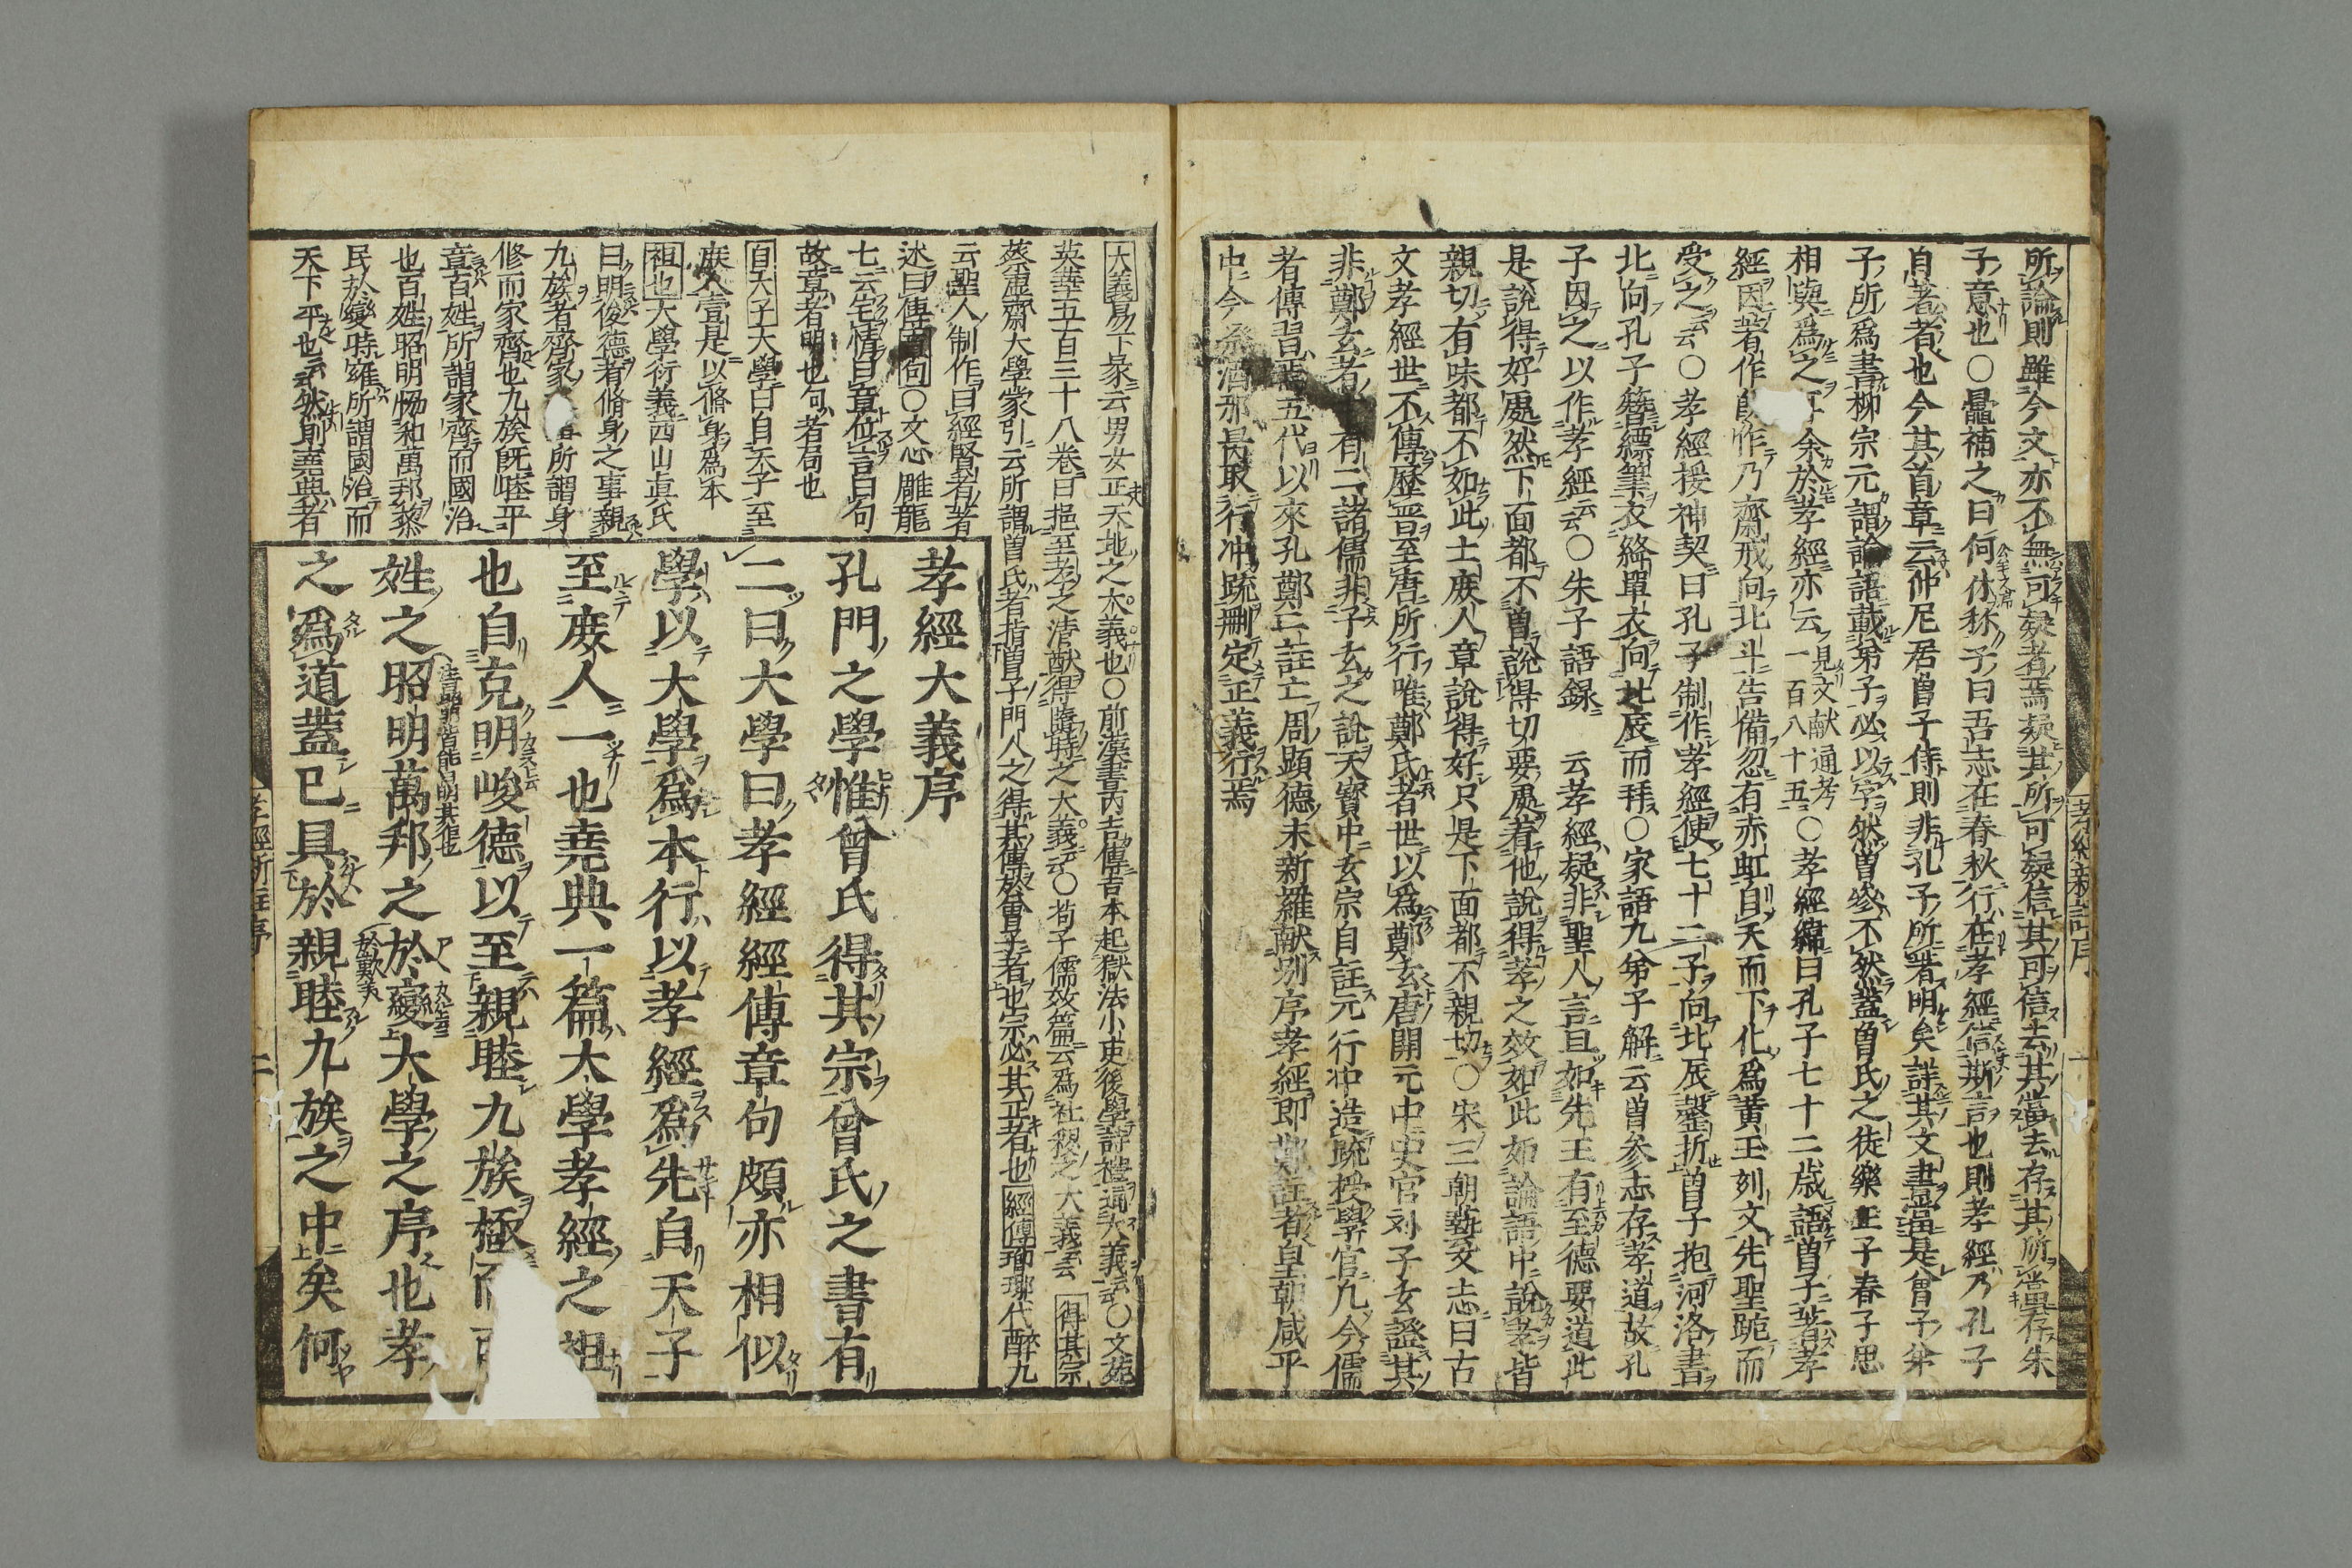 所論則雖今文亦不無可疑者焉疑其所可疑信其可信去其當去存其所當存朱
子意也○鼂補之曰何休稱子曰吾志在春秋行在孝經信斯言也則孝經乃孔子
自著者也今其首章云仲尼居曽子侍則非孔子所著明矣詳其文書當是曾子弟
子所爲書柳宗元謂論語載弟子必以字然曽參不然蓋曽氏之徒樂正子春子思
相與爲之耳余於孝經亦云見文献通考一百八十五○孝經緯曰孔子七十二歳語曽子著孝
經因著作既作乃齋戒向北斗告備忽有赤虹自天而下化爲黄玉刻文先聖跪而
受之云○孝經援神契曰孔子制作孝經使七十二子向北辰罄折曽子抱河洛書
北向孔子簪縹筆衣絳單衣向北辰而拜○家語九弟子解云曽参志存孝道故孔
子因之以作孝經云○朱子語録 云孝經疑非聖人言且如先王有至德要道此
是說得好處然下面都不曽說得切要處著他說得孝之效如此如論語中說孝皆
親切有味都不如此士庻人章說得好只是下面都不親切○宋三朝藝文志曰古
文孝經世不傳歷晉至唐所行唯鄭氏者世以爲鄭玄唐開元中史官刘子玄證其
非鄭玄者有二諸儒非子玄之說天寳中玄宗自註元行冲造疏授學官凡今儒
者傳習焉五代以來孔鄭二註亡周顕德末新羅献別序孝經即鄭註者皇朝咸平
中今祭酒邢昺取行冲疏删定正義行焉
孝經新註序
大義易下彖云男女正天地之大義也○前漢書丙吉傳吉本起獄法小吏後學詩禮通大義云○文苑
英華五百三十八卷曰挹至孝之清猷得隨時之大義云○荀子儒效篇云爲社稷之大義云 得其宗
蔡虛齋大學蒙引云所謂曽氏者指曽子門人之得其傳於曾子者也宗必其正者也 經傳瑯琊代醉九
云聖人制作曰經賢者著
述曰傳章句○文心雕龍
七云宅情曰章位言曰句
故章者明也句者局也
自天子大學曰自天子至
庻人壹是以脩身爲本
祖也大學衍義西山真氏
曰明俊德者脩身之事親
九族者齊家所謂身
修而家齊也九族既睦平
章百姓所謂家齊而國治
也百姓昭明恊和萬邦黎
民於變時雍所謂國治而
天下平也云然則堯典者
孝經大義序
孔門之學惟曾氏得其宗曾氏之書有
二曰大學曰孝經經傳章句頗亦相似
學以大學爲本行以孝經爲先自天子
至庻人一也堯典一篇大學孝經之祖
也自克明峻德以至親睦九族極而百
姓之昭明萬邦之於變大學之序也孝
之爲道蓋已具於親睦九族之中矣何
孝經新註序 二